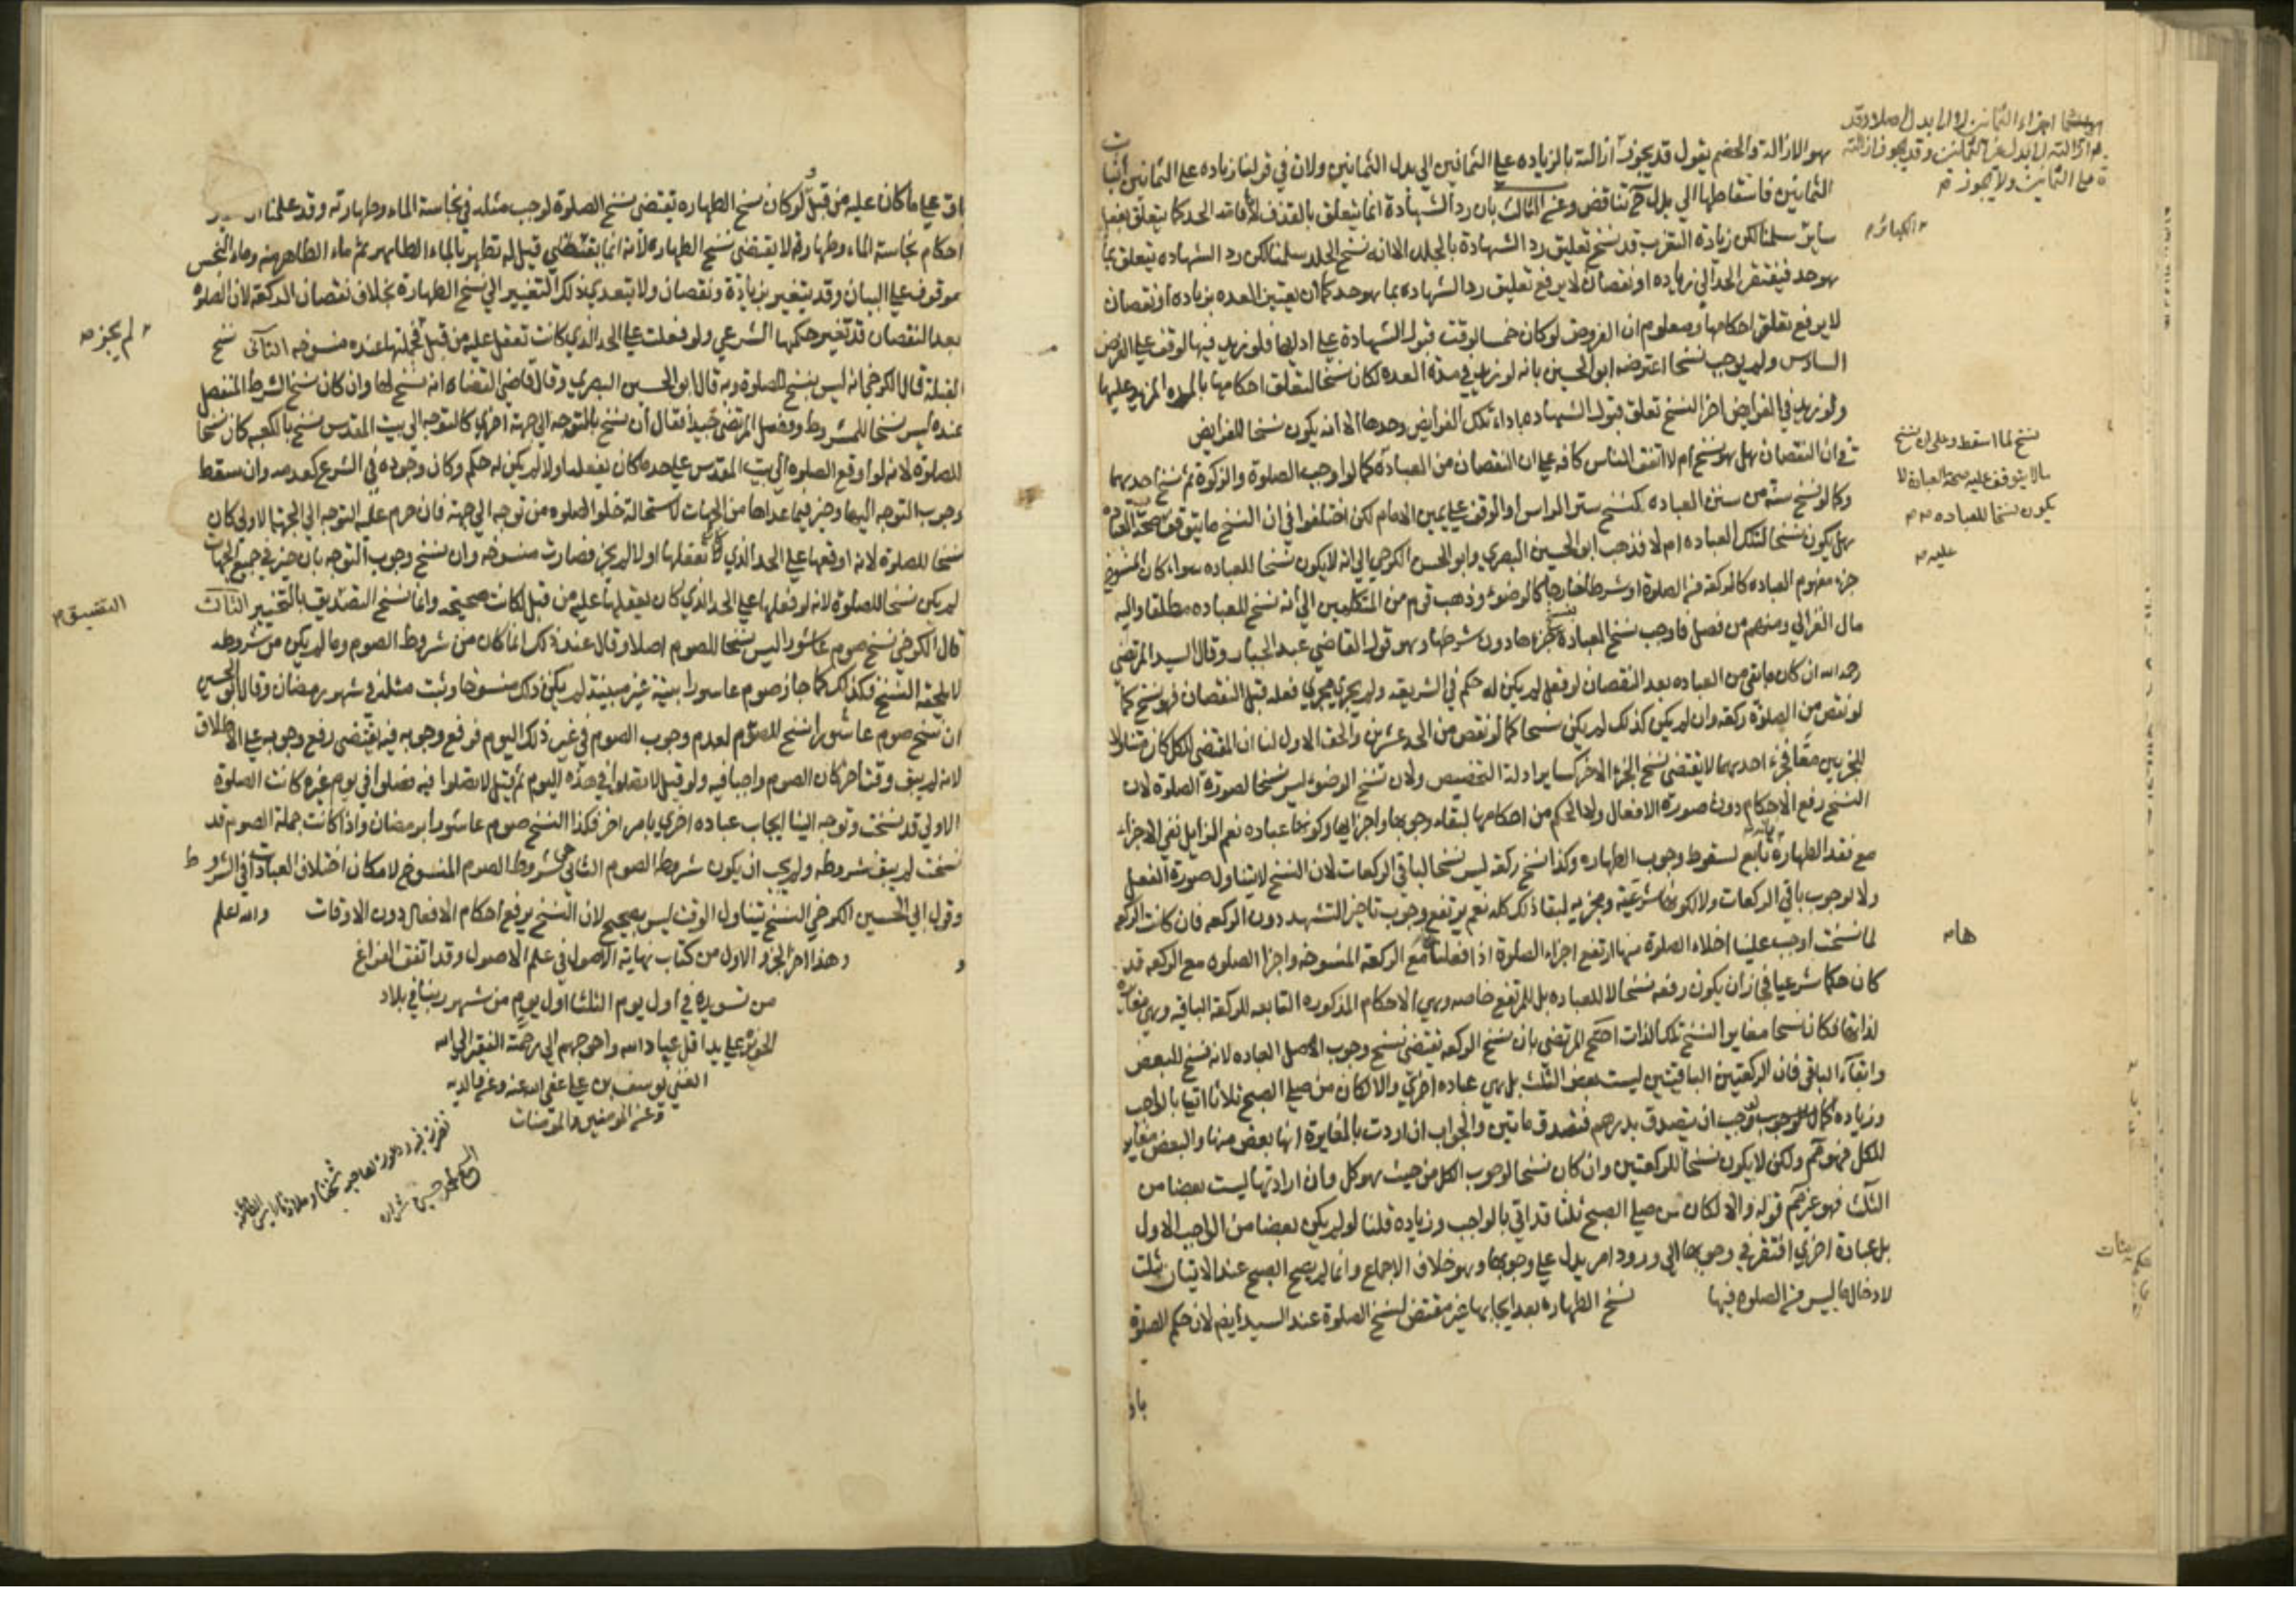 هو الازالة والخصم يقول قد يجوز ازالته بالزياده على الثمانين الى بدل الثمانين ولان في قولنا زياده على الثمانين اثبات
الثمانين فاسقاطها الى بدل تناقض وعن الثالث بان رد الشهادة انما يتعلق بالقذف لاقامة الحد كما يتعلق بفعل
سابق سلمنا لكن زيادة التغريب قد نسخ تعليق رد الشهادة بالجلد الا انه نسخ الجلد سلمنا لكن رد الشهاده يتعلق بما
هو حد فيفتقر الحد الى زياده او نقصان لا يرفع تعليق رد الشهاده بما هو حد كما ان يعتبر العده بزياده او نقصان
لا يرفع تعلق احكامها ومعلوم ان الفروض لو كان خمسا لوقف قبول الشهادة على ادايها فلو زيد فيها لوقف على الفرض
السادس ولم يوجب نسخا اعترضه ابو الحسين بانه لو زيد في مدة العده لكان نسخا لتعلق احكامها بالمده المزيد عليها
ولو زيد في الفرايض اخر النسخ تعلق قبول الشهاده باداء تلك الفرايض وحدها الا انه يكون نسخا للفرايض
في ان النقصان هل هو نسخ ام لا اتفق الناس كافه على ان النقصان من العبادة كما لو اوجب الصلوة والزكوة ثم نسخ احدهما
وكما لو نسخ سنة من سنن العباده كنسخ ستر الراس او الوقوف على يمين الامام لكن اختلفوا في ان النسخ ما يتوقف صحة العباده
هل يكون نسخا لتلك العباده ام لا فذهب ابو الحسين البصري وابو الحسن الكرخي الى انه لا يكون نسخا للعباده سواء كان المنسوخ
جزء مفهوم العباده كالركعة من الصلوة او شرطا خارجا كالوضوء وذهب قوم من المتكلمين الى انه نسخ للعباده مطلقا واليه
مال الغزالي ومنهم من فصل فاوجب نسخ العبادة بنسخ جزءها دون شرطها وهو قول القاضي عبد الجبار وقال السيد المرتضى
رحمه الله ان كان ما بقي من العباده بعد النقصان لو فعل لم يكن له حكم في الشريعه ولم يجر مجرى فعله قبل النقصان فهو نسخ كما
لو نقص من الصلوة ركعة وان لم يكن كذلك لم يكن نسخا كما لو نقص من الحد عشرين والحق الاول لنا ان المقتضي للكل كان متناولا
للجزءين معا فجزء احدهما لا يقتضي نسخ الجزء الاخر كساير ادلة التخصيص ولان نسخ الوضوء ليس نسخا لصورة الصلوة لان
النسخ رفع الاحكام دون صورة الافعال ولا لحكم من احكامها لبقاء وجوبها واجزايها وكونها عباده نعم الزايل نفي الاجزاء
مع فقد الطهارة تابع لسقوط وجوب الطهاره وكذا نسخ ركعة ليس نسخا لباقي الركعات لان النسخ لا يتناول صورة الفعل
ولا لوجوب باقي الركعات ولا لكونها شرعية ومجزيه لبقا ذلك كله نعم يرتفع وجوب تاخير التشهد دون الركعه فان كانت الركعة
لما نسخت اوجب علينا اخلاء الصلوة منها ارتفع اجزاء الصلوة اذا فعلنا مع الركعة المنسوخه واجزا الصلوه مع الركعه قد
كان حكما شرعيا فجاز ان يكون رفعه نسخا لا للعباده بل للمرتفع خاصه وهي الاحكام المذكوره التابعه للركعة الباقيه وهي مغايرة
لذاتها فكان نسخا مغايرا لنسخ تلك الذات احتج المرتضى بان نسخ الركعه يقتضي نسخ وجوب اصل العباده لانه نسخ للبعض
وابقاء الباقي فان الركعتين الباقيتين ليست بعض الثلث بل هي عباده اخرى والا لكان من صلى الصبح ثلاثا اتيا بالواجب
وزياده كما لو وجب ان يتصدق بدرهم فتصدق باثنين والجواب ان اردت بالمغايرة انها بعض منها والبعض مغاير
للكل فهو حق ولكن لا يكون نسخا للركعتين وان كان نسخا لوجوب الكل من حيث هو كل وان اراد انها ليست بعضا من
الثلث فهو غير حق قوله والا لكان من صلى الصبح ثلثا قد اتى بالواجب وزياده قلنا لو لم يكن بعضا من الواجب الاول
بل عبادة اخرى افتقر في وجوبها الى ورود امر يدل على وجوبها وهو خلاف الاجماع وانما لم يصح الصبح عند الاتيان بثلث
لادخال ما ليس من الصلوه فيها نسخ الطهاره بعد ايجابها غير مقتض لنسخ الصلوة عند السيد ايضا لان حكم الصلوة
باق
الكبائر
نسخ لما اسقط وعلى ان نسخ
ما لا يتوقف عليه صحة العبادة لا
يكون نسخا للعباده
عليه
ها
باق على ما كان عليه من قبل ولو كان نسخ الطهاره يقتضي نسخ الصلوة لوجب مثله في نجاسة الماء وطهارته وقد علمنا
احكام نجاسة الماء وطهارته لا يقتضي نسخ الطهاره لانه انما يقتضي قيل له تطهر بالماء الطاهر ثم ماء الطاهر منه وماء النجس
موقوف على البيان وقد يتغير بزيادة ونقصان ولا يتعدى ذلك التغيير الى نسخ الطهارة بخلاف نقصان الركعة لان الصلوة
بعد النقصان قد تغير حكمها الشرعي ولو فعلت على الحد الذي كانت تفعل عليه من قبل فجملتها عنده منسوخه الثاني نسخ
القبلة قال الكرخي انه ليس بنسخ للصلوة وبه قال ابو الحسين البصري وقال قاضي القضاة انه نسخ لها وان كان نسخ الشرط المنفصل
عنده ليس نسخا للمشروط وفصل المرتضى جيدا فقال ان نسخ بالتوجه الى جهة اخرى كالتوجه الى بيت المقدس نسخ بالكعبه كان نسخا
للصلوة لانه لو اوقع الصلوه الى بيت المقدس على حد ما كان يفعله اولا لم يكن له حكم وكان وجوده في الشرع كعدمه وان سقط
وجوب التوجه اليها وخير فيما عداها من الجهات لاستحالة خلو الصلوه من توجه الى جهة فان حرم عليه التوجه الى الجهة الاولى كان
نسخا للصلوة لانه اوقعها على الحد الذي كان يفعلها اولا لم يجز فصارت منسوخه وان نسخ وجوب التوجه بان خير في جميع الجهات
لم يكن نسخا للصلوة لانه لو فعلها على الحد الذي كان يفعلها عليه من قبل لكانت صحيحة وانما نسخ التضييق بالتخيير الثالث
قال الكرخي نسخ صوم عاشورا ليس نسخا للصوم اصلا وقال عند ذلك انما كان من شروط الصوم وما لم يكن من شروطه
لا يلحقه النسخ فكذلك لما جاز صوم عاشورا بنية غير مبيتة لم يكن ذلك منسوخا وثبت مثله في شهر رمضان وقال ابو الحسين
ان نسخ صوم عاشورا نسخ للصوم لعدم وجوب الصوم في غير ذلك اليوم فرفع وجوبه فيه يقتضي رفع وجوبه على الاطلاق
لانه لم يبق وقت اخر كان الصوم واجبا فيه ولو قيل لا تصلوا في هذه اليوم ثم قيل لا تصلوا فيه فصلوا في يوم غيره كانت الصلوة
الاولى قد نسخت وتوجه الينا ايجاب عباده اخرى بامر اخر فكذا النسخ صوم عاشورا برمضان واذا كانت جملة الصوم قد
نسخت لم يبق شروطه ولم يجب ان يكون شروط الصوم الثاني هي شروط الصوم المنسوخ لامكان اختلاف العبادات في الشروط
وقول ابي الحسين الكرخي النسخ يتناول الوقت ليس بصحيح لان النسخ يرفع احكام الافعال دون الاوقات والله اعلم
وهذا اخر الجزو الاول من كتاب نهاية الاصول في علم الاصول وقد اتفق الفراغ
من تسويده في اول يوم الثلثا اول يوم من شهر ربيع الثاني بلاد
على يد اقل عباد الله واحوجهم الى رحمة الفقير الى الله
الغني يوسف بن علي عفى الله عنه وعن والديه
وعن المومنين والمومنات
لم يجز
التضييق